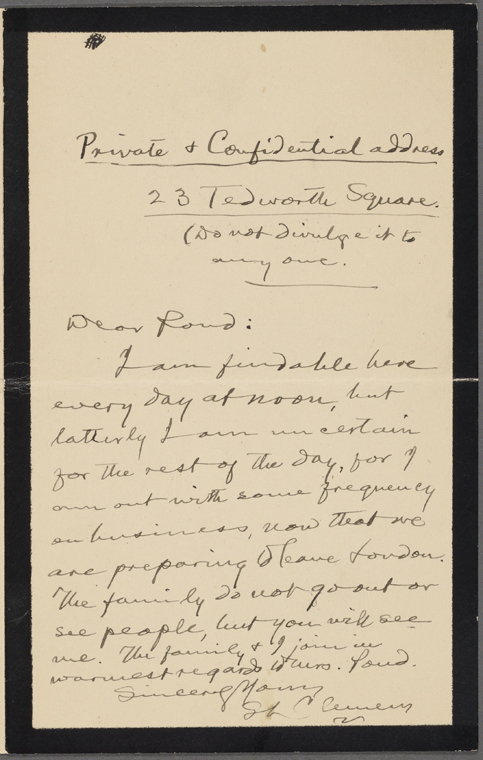 Private & Confidential address
23 Tedworth Square.
(Do not divulge it to
any one.
Dear Pond:
I am findable here
every day at noon, but
latterly I am uncertain
for the rest of the day, for I
am out with some frequency
on business, now that we
are preparing to leave London.
The family do not go out or
see people, but you will see
me. The family & I join in
warmest regards to Mrs. Pond.
Sincerely Yours
SL Clemens